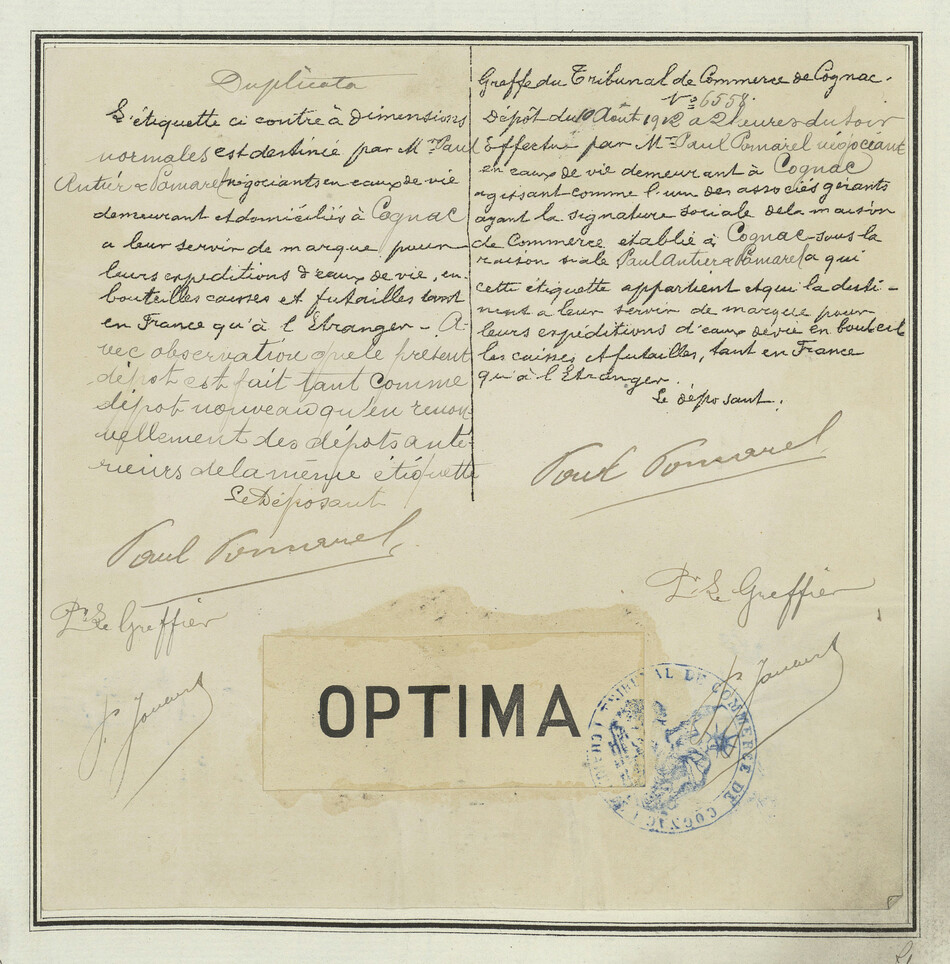 Duplicata
L'étiquette ci contre à dimensions
normales est destiné par Mr Paul
Antier & Pomarel négociants en eaux de vie
demeurant et domiciliés à Cognac
a leur servir de marque pour
leurs expeditions d'eaux de vie, en
bouteilles caisses et futailles tant
en France qu'à l'Etranger - A-
vec observation que le présent
dépot est fait tant comme
dépot nouveau qu'en renou-
vellement des dépots anté-
rieurs de la même étiquette
Le Déposant
Paul Pomarel
Pr Le Greffier
Greffe du Tribunal de Commerce de Cognac.
No 6558.
Dépôt du 10 Août 1912 a 2 heures du soir
Effectué par Mr Paul Pomarel négociant
en eaux de vie demeurant à Cognac
agissant comme l'un des associés gérants
ayant la signature sociale de la maison
de Commerce établie à Cognac sous la
raison siale Paul Antier & Pomarel a qui
cette étiquette appartient et qui la desti-
nent a leur servir de marque pour
leurs expéditions d'eaux de vie en bouteil
les caisses et futailles, tant en France
qu'à l'Etranger.
Le déposant.
Paul Pomarel
Pr Le Greffier
OPTIMA
TRIBUNAL DE COMMERCE DE COGNAC